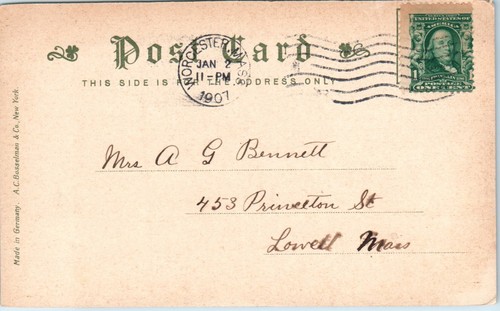 Post Card
THIS SIDE IS FOR THE ADDRESS ONLY
WORCESTER, MASS
JAN 2
11-PM
1907
UNITED STATES OF AMERICA
1
ONE CENT
Mrs A G Bennett
453 Princeton St
Lowell Mass
Made in Germany. A.C. Bosselman & Co., New York.